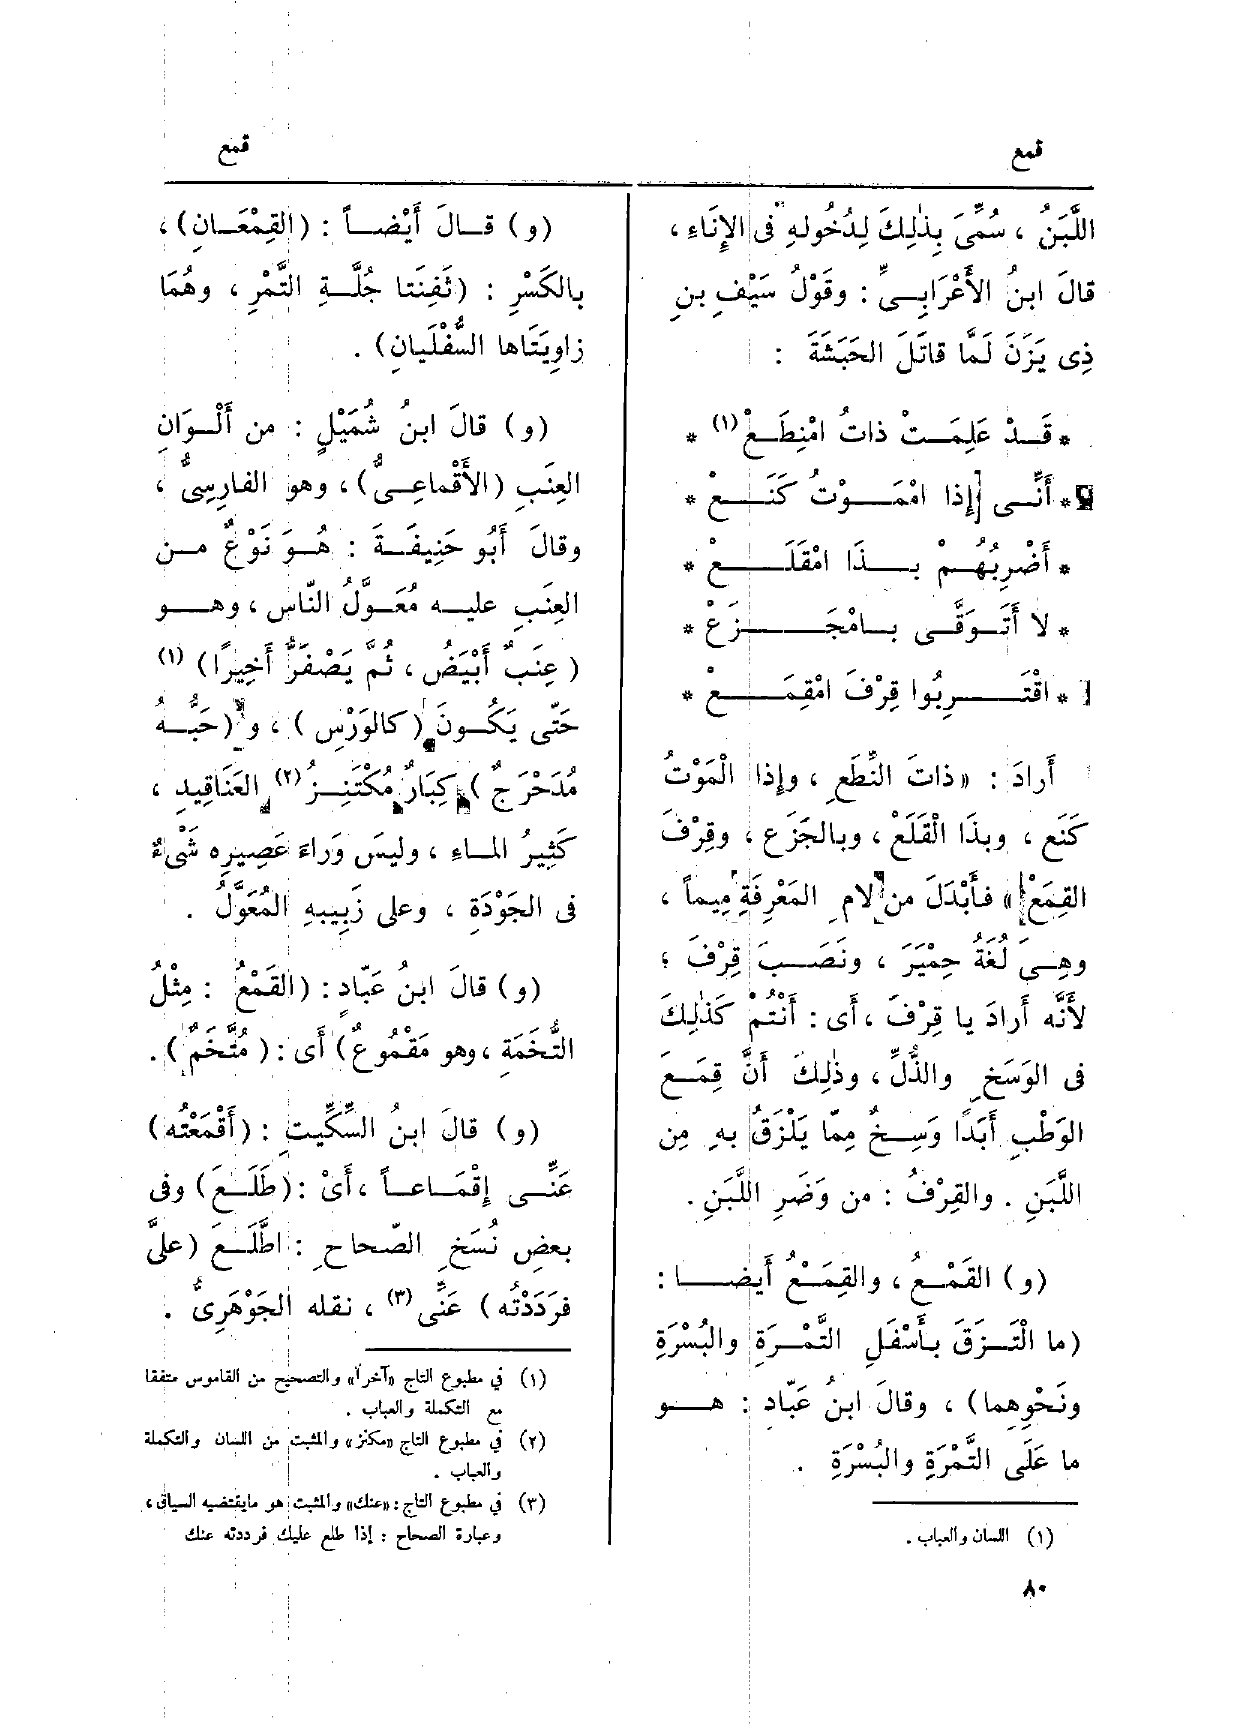 قمع
قمع
اللَّبَنُ ، سُمِّىَ بِذٰلِكَ لِدُخُولهِ فى الإِنَاءِ ،
قالَ ابنُ الأَعْرَابِىِّ : وقَوْلُ سَيْفِ بنِ
ذِى يَزَنَ لَمَّا قاتَلَ الحَبَشَةَ :
* قَدْ عَلِمَتْ ذاتُ امْنِطَعْ (١) *
* أَنِّى إِذا امْمَوْتُ كَنَعْ *
* أَضْرِبُهُمْ بِذَا امْقَلَعْ *
* لا أَتَوَقَّى بامْجَزَعْ *
* اقْتَرِبُوا قِرْفَ امْقِمَعْ *
أَرادَ : « ذاتَ النِّطَعِ ، وإِذا الْمَوْتُ
كَنَع ، وبِذَا الْقَلَعْ ، وبالجَزَعِ ، وقِرْفَ
القِمَعْ » فأَبْدَلَ من لامِ المَعْرِفَةِ مِيماً ،
وهِىَ لُغَةُ حِمْيَرَ ، ونَصَبَ قِرْفَ ؛
لأَنَّه أَرادَ يا قِرْفَ ، أَى : أَنْتُمْ كَذٰلِكَ
فى الوَسَخِ والذُّلِّ ، وذٰلِكَ أَنَّ قِمَعَ
الوَطْبِ أَبَدًا وَسِخٌ مِمّا يَلْزَقُ بهِ مِن
اللَّبَنِ . والقِرْفُ : من وَضَرِ اللَّبَنِ .
(و) القَمْعُ ، والقِمَعُ أَيضا :
(ما الْتَزَقَ بأَسْفَلِ التَّمْرَةِ والبُسْرَةِ
ونَحْوِهِما) ، وقالَ ابنُ عَبّادٍ : هو
ما عَلَى التَّمْرَةِ والبُسْرَةِ .
(١) اللسان والعباب .
٨٠
(و) قالَ أَيْضاً : (القِمْعَانِ) ،
بالكَسْرِ : (ثَفِنَتا جُلَّةِ التَّمْرِ ، وهُمَا
زاوِيَتَاها السُّفْلَيانِ) .
(و) قالَ ابنُ شُمَيْلٍ : من أَلْوَانِ
العِنَبِ (الأَقْماعِىُّ) ، وهو الفارِسِىُّ ،
وقالَ أَبُو حَنِيفَةَ : هُوَ نَوْعٌ من
العِنَبِ عليه مُعَوَّلُ النّاسِ ، وهو
(عِنَبٌ أَبْيَضُ ، ثُمَّ يَصْفَرُّ أَخِيرًا) (١)
حَتّى يَكُونَ (كالوَرْسِ) ، و (حَبُّهُ
مُدَحْرَجٌ) كِبَارٌ مُكْتَنِزُ (٢) العَنَاقِيدِ ،
كَثِيرُ الماءِ ، وليسَ وَراءَ عَصِيرِه شَىْءٌ
فى الجَوْدَةِ ، وعلى زَبِيبِهِ المُعَوَّلُ .
(و) قالَ ابنُ عَبّادٍ : (القَمْعُ : مِثْلُ
التُّخَمَةِ ، وهو مَقْمُوعٌ) أَى : (مُتَّخَمٌ) .
(و) قالَ ابنُ السِّكِّيتِ : (أَقْمَعْتُه)
عَنِّى إِقْمَاعاً ، أَىْ : (طَلَعَ) وفى
بعضِ نُسَخِ الصّحاحِ : اطَّلَعَ (علىَّ
فرَدَدْتُه) عَنِّى (٣) ، نقله الجَوْهَرِىُّ .
(١) في مطبوع التاج «آخراً» والتصحيح من القاموس متفقا
مع التكملة والعباب .
(٢) في مطبوع التاج «مكنز» والمثبت من اللسان والتكملة
والعباب .
(٣) في مطبوع التاج : «عنك» والمثبت هو مايقتضيه السياق ،
وعبارة الصحاح : إذا طلع عليك فرددته عنك